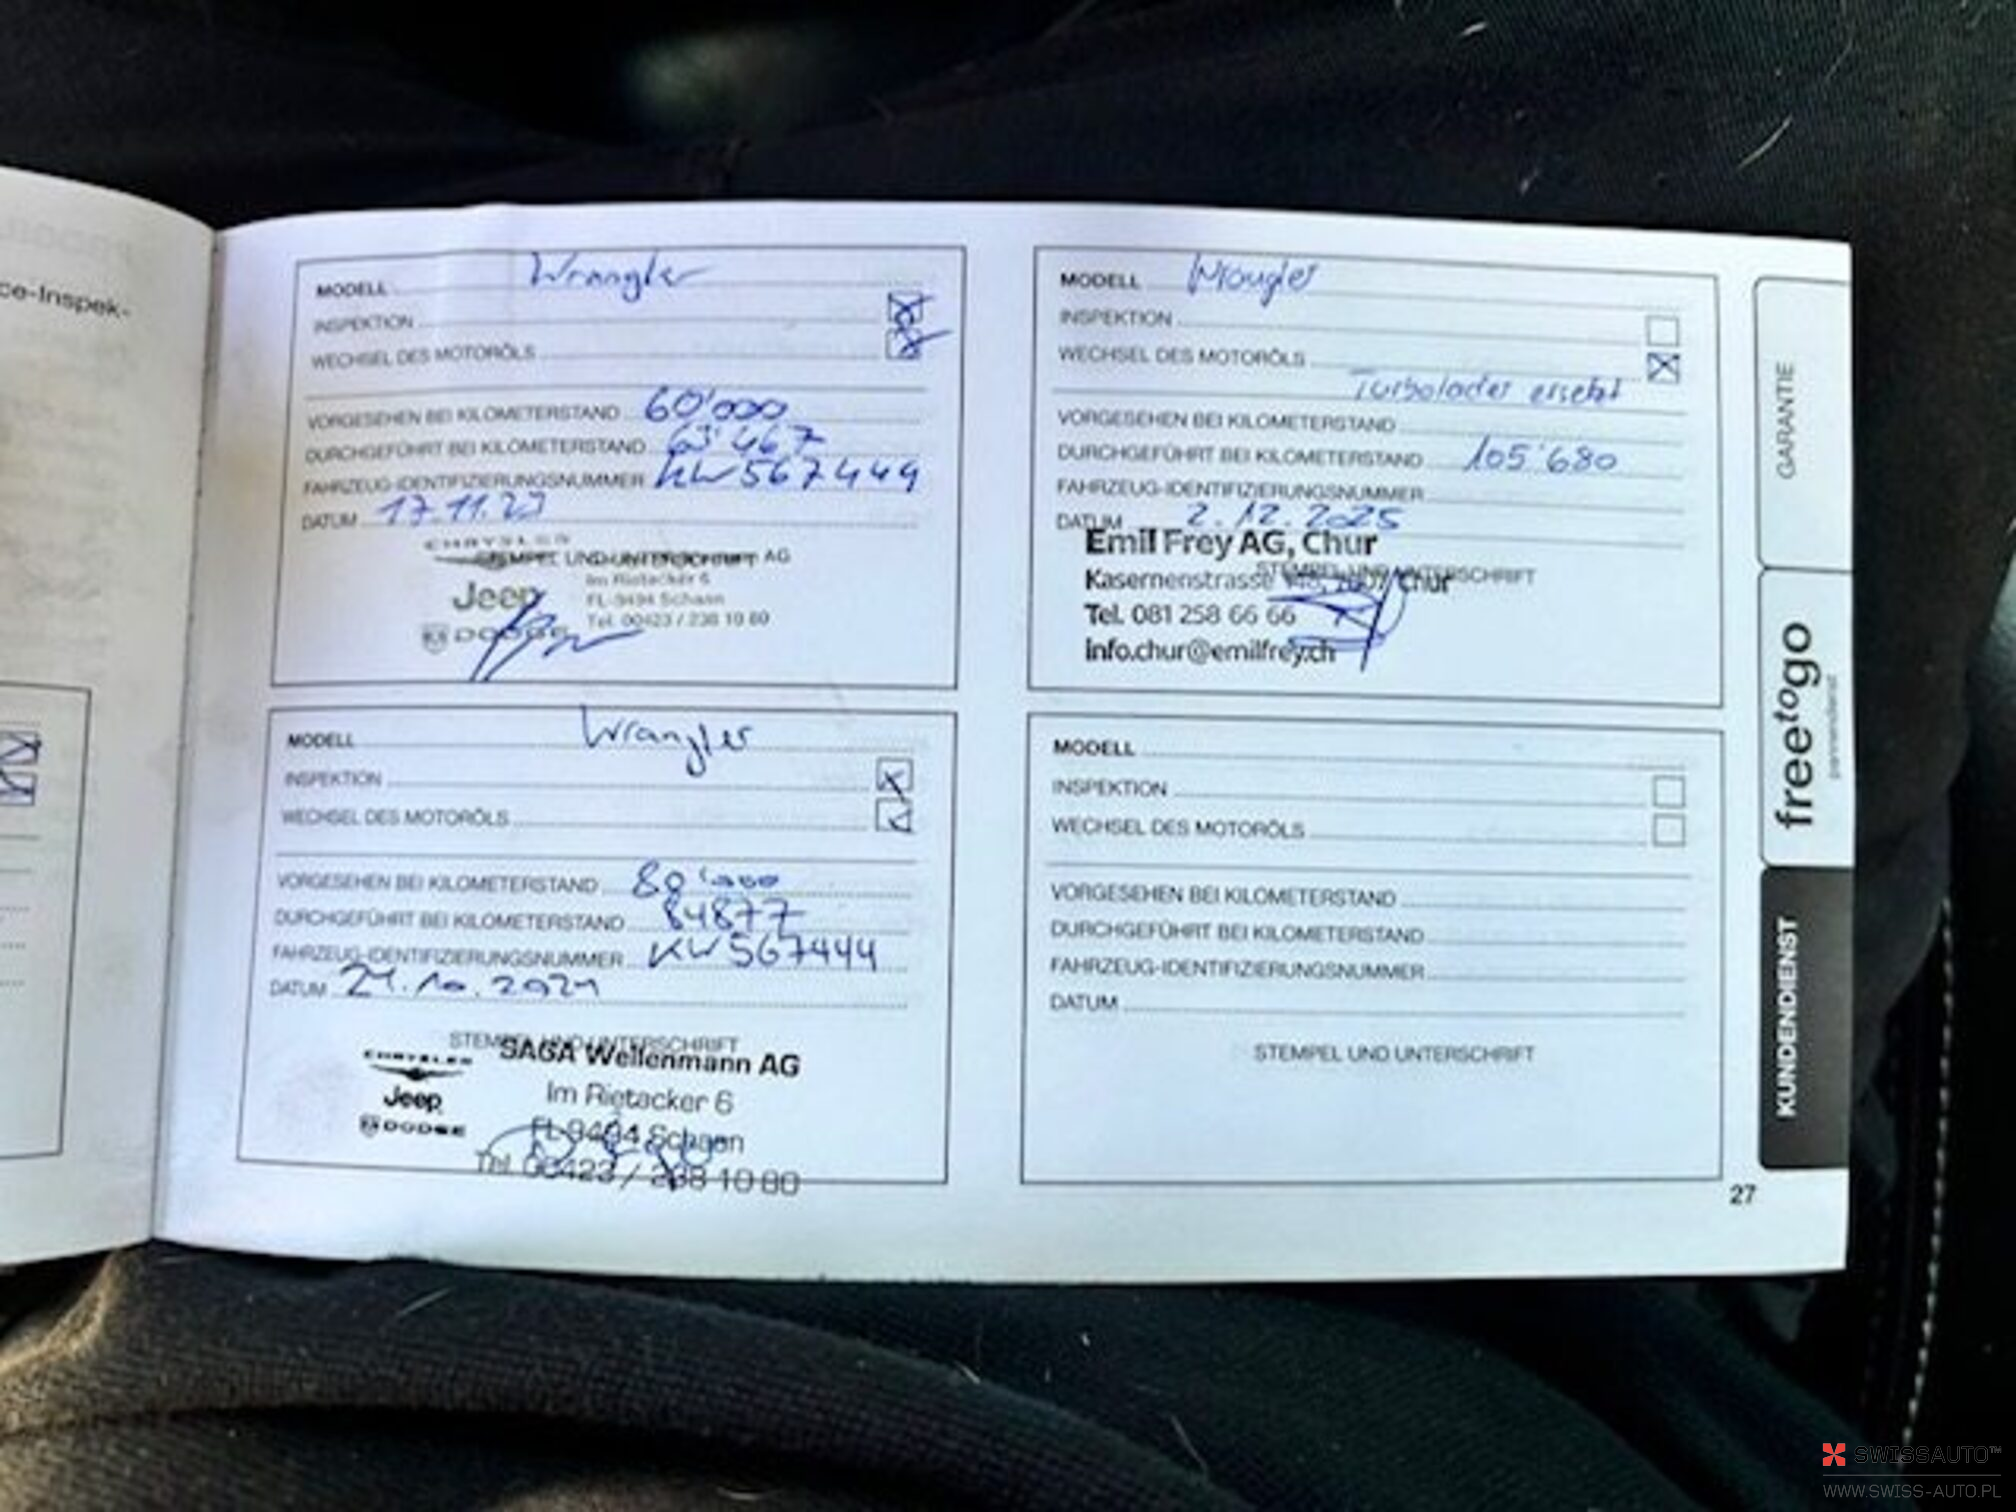 ce-Inspek-
MODELL Wrangler
INSPEKTION
WECHSEL DES MOTORÖLS
VORGESEHEN BEI KILOMETERSTAND 60'000
DURCHGEFÜHRT BEI KILOMETERSTAND 63'467
FAHRZEUG-IDENTIFIZIERUNGSNUMMER KW567449
DATUM 17.11.23
CHRYSLER
STEMPEL UND UNTERSCHRIFT AG
Jeep Im Rietacker 6
FL-9494 Schaan
DODGE Tel. 00423 / 238 10 80
MODELL Wrangler
INSPEKTION
WECHSEL DES MOTORÖLS
VORGESEHEN BEI KILOMETERSTAND 80'000
DURCHGEFÜHRT BEI KILOMETERSTAND 84877
FAHRZEUG-IDENTIFIZIERUNGSNUMMER KW567444
DATUM 24.10.2024
STEMPEL UND UNTERSCHRIFT
CHRYSLER SAGA Wellenmann AG
Jeep Im Rietacker 6
DODGE FL-9494 Schaan
Tel. 00423 / 238 10 80
MODELL Wrangler
INSPEKTION
WECHSEL DES MOTORÖLS
Turbolader ersetzt
VORGESEHEN BEI KILOMETERSTAND
DURCHGEFÜHRT BEI KILOMETERSTAND 105'680
FAHRZEUG-IDENTIFIZIERUNGSNUMMER
DATUM 2.12.2025
Emil Frey AG, Chur
STEMPEL UND UNTERSCHRIFT
Kasernenstrasse 148, 7007 Chur
Tel. 081 258 66 66
info.chur@emilfrey.ch
MODELL
INSPEKTION
WECHSEL DES MOTORÖLS
VORGESEHEN BEI KILOMETERSTAND
DURCHGEFÜHRT BEI KILOMETERSTAND
FAHRZEUG-IDENTIFIZIERUNGSNUMMER
DATUM
STEMPEL UND UNTERSCHRIFT
GARANTIE
freetogo
pannendienst
KUNDENDIENST
27
SWISSAUTO™
WWW.SWISS-AUTO.PL